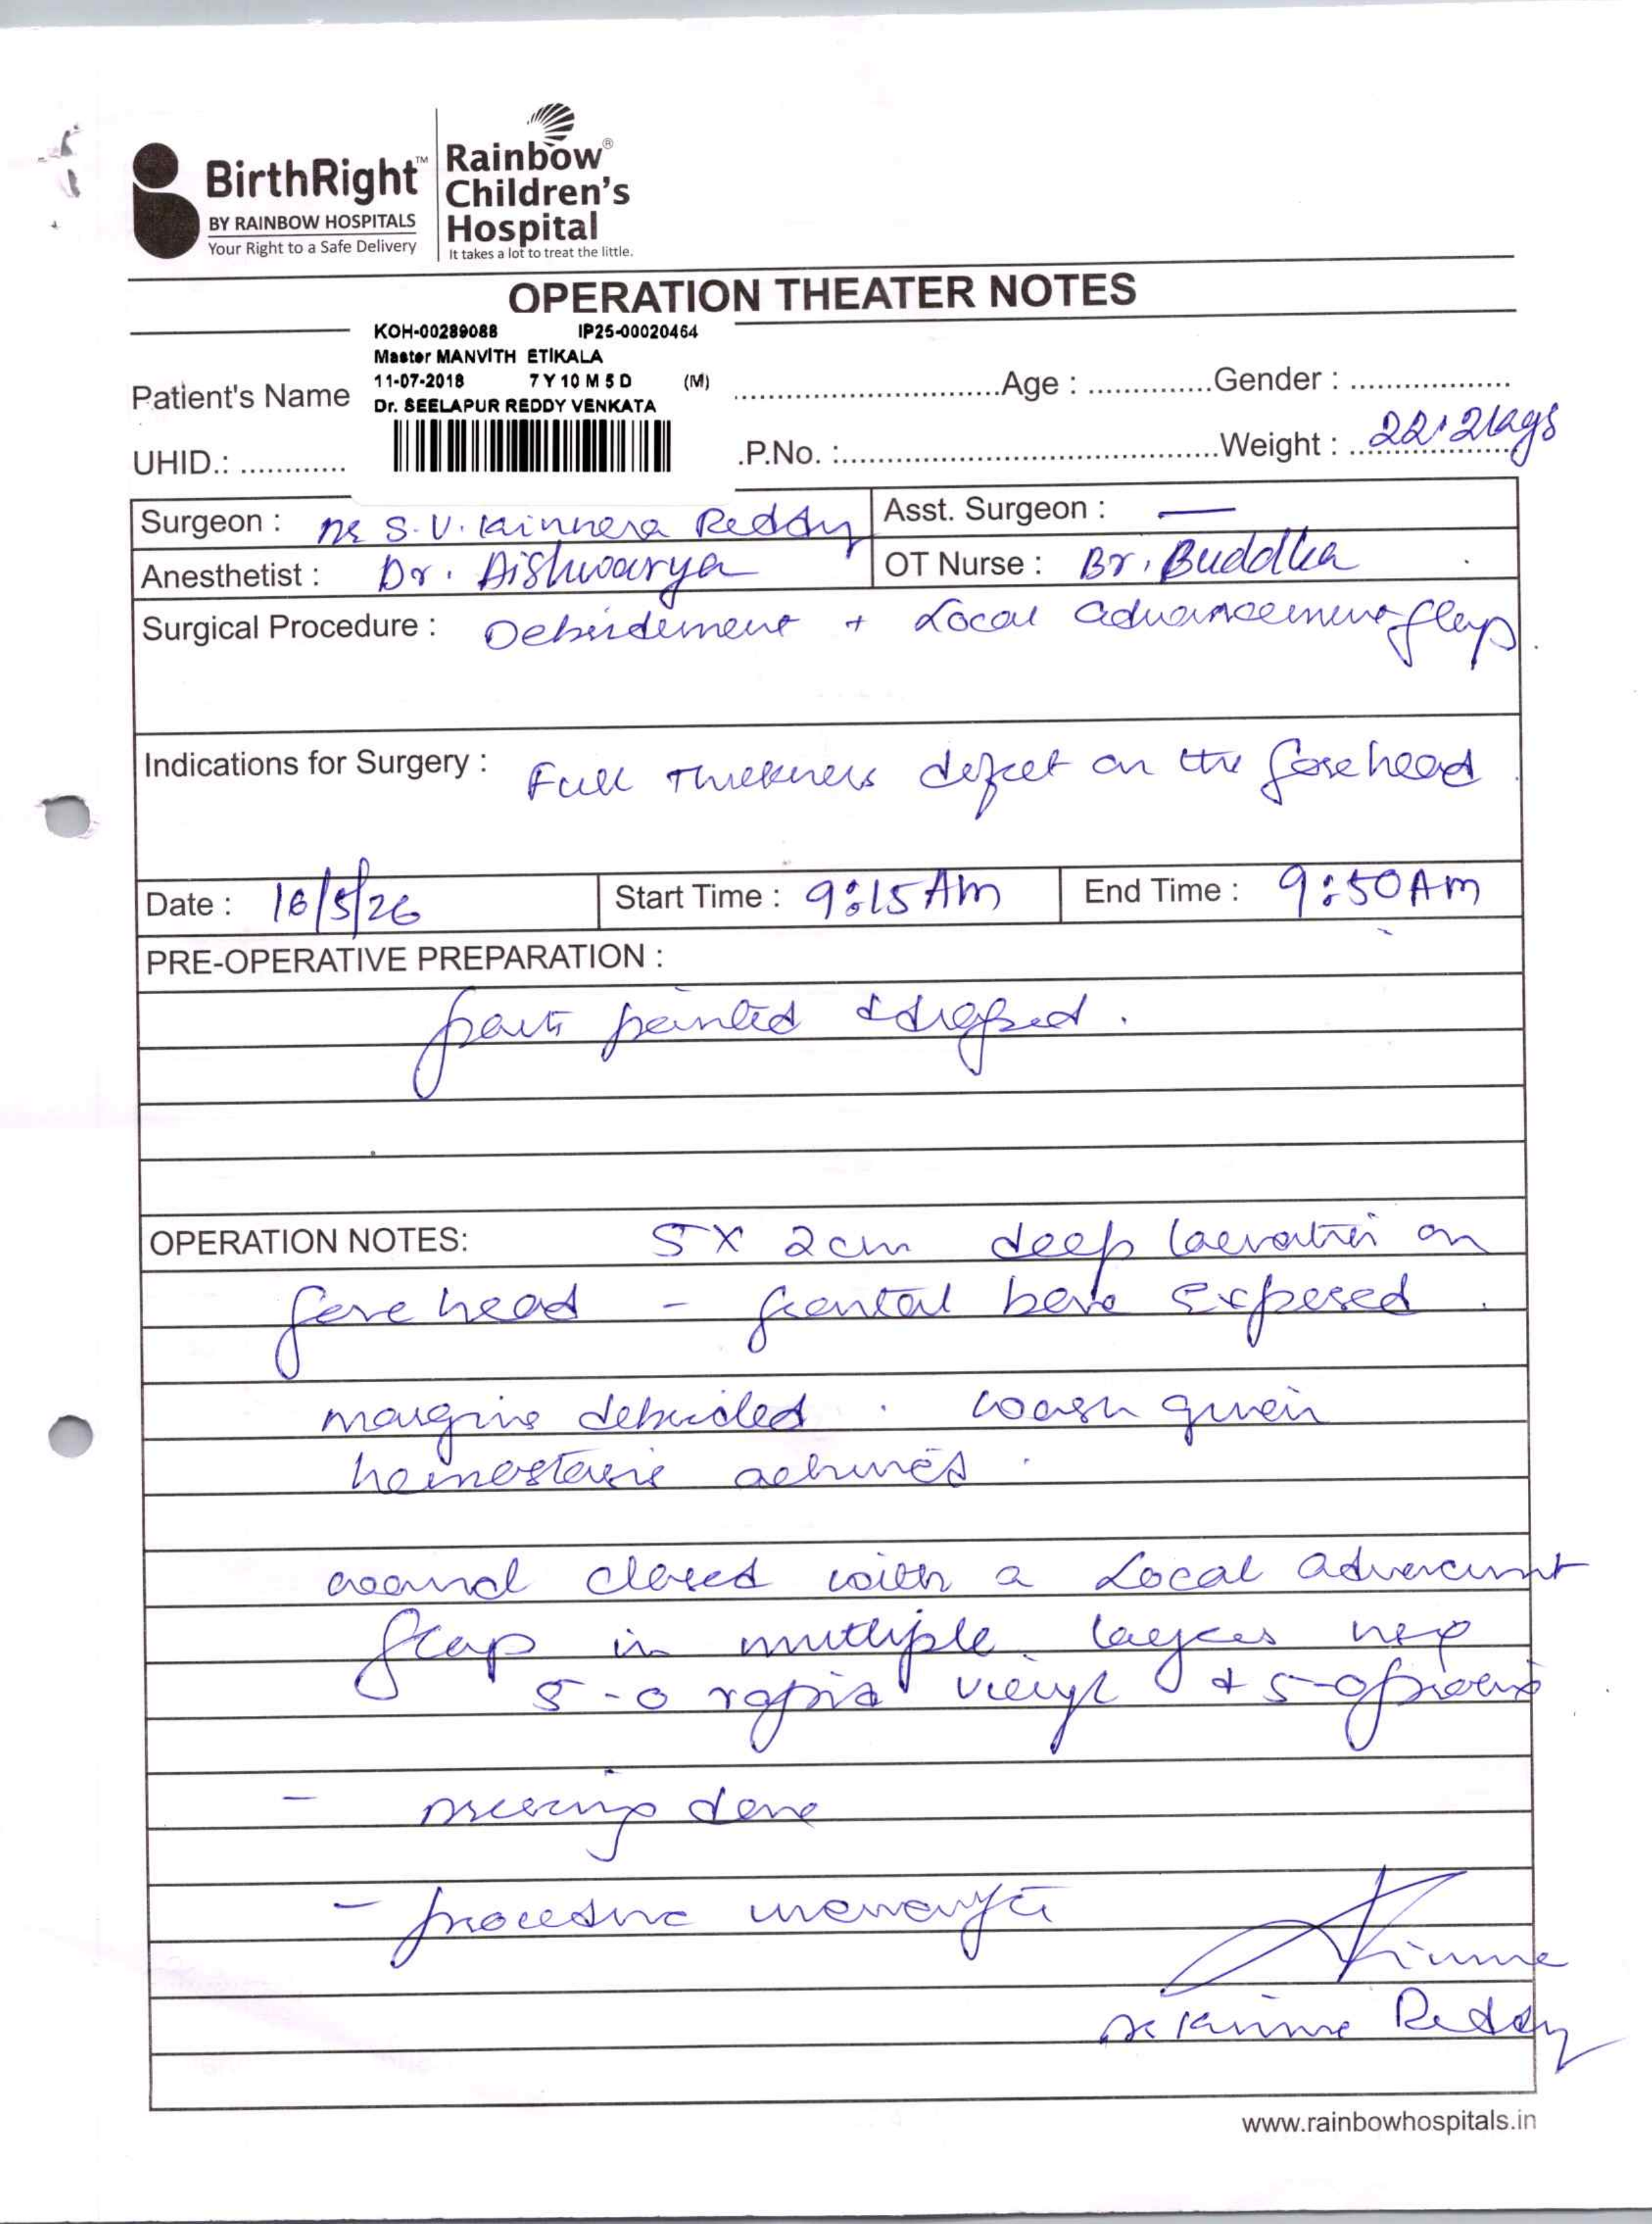 BirthRight™
BY RAINBOW HOSPITALS
Your Right to a Safe Delivery
Rainbow®
Children's
Hospital
It takes a lot to treat the little.
OPERATION THEATER NOTES
KOH-00289088 IP25-00020464
Master MANVITH ETIKALA
11-07-2018 7 Y 10 M 5 D (M)
Dr. SEELAPUR REDDY VENKATA
Patient's Name Age : Gender :
UHID.: .P.No. : Weight : 22.2kgs
Surgeon : Dr S.V. Kinnera Reddy Asst. Surgeon : —
Anesthetist : Dr. Aishwarya OT Nurse : Br. Buddha
Surgical Procedure : Debridement + Local advancement flap.
Indications for Surgery : Full Thickness defect on the forehead
Date : 16/5/26 Start Time : 9:15 AM End Time : 9:50 AM
PRE-OPERATIVE PREPARATION :
part painted & draped.
OPERATION NOTES: 5 X 2 cm deep laceration on
fore head - frontal bone exposed.
margins debrided. wash given
hemostasis achieved.
wound closed with a Local advancement
flap in multiple layers
5-0 rapid vicryl + 5-0
- Dressing done
- procedure uneventful
Dr Kinnera Reddy
www.rainbowhospitals.in